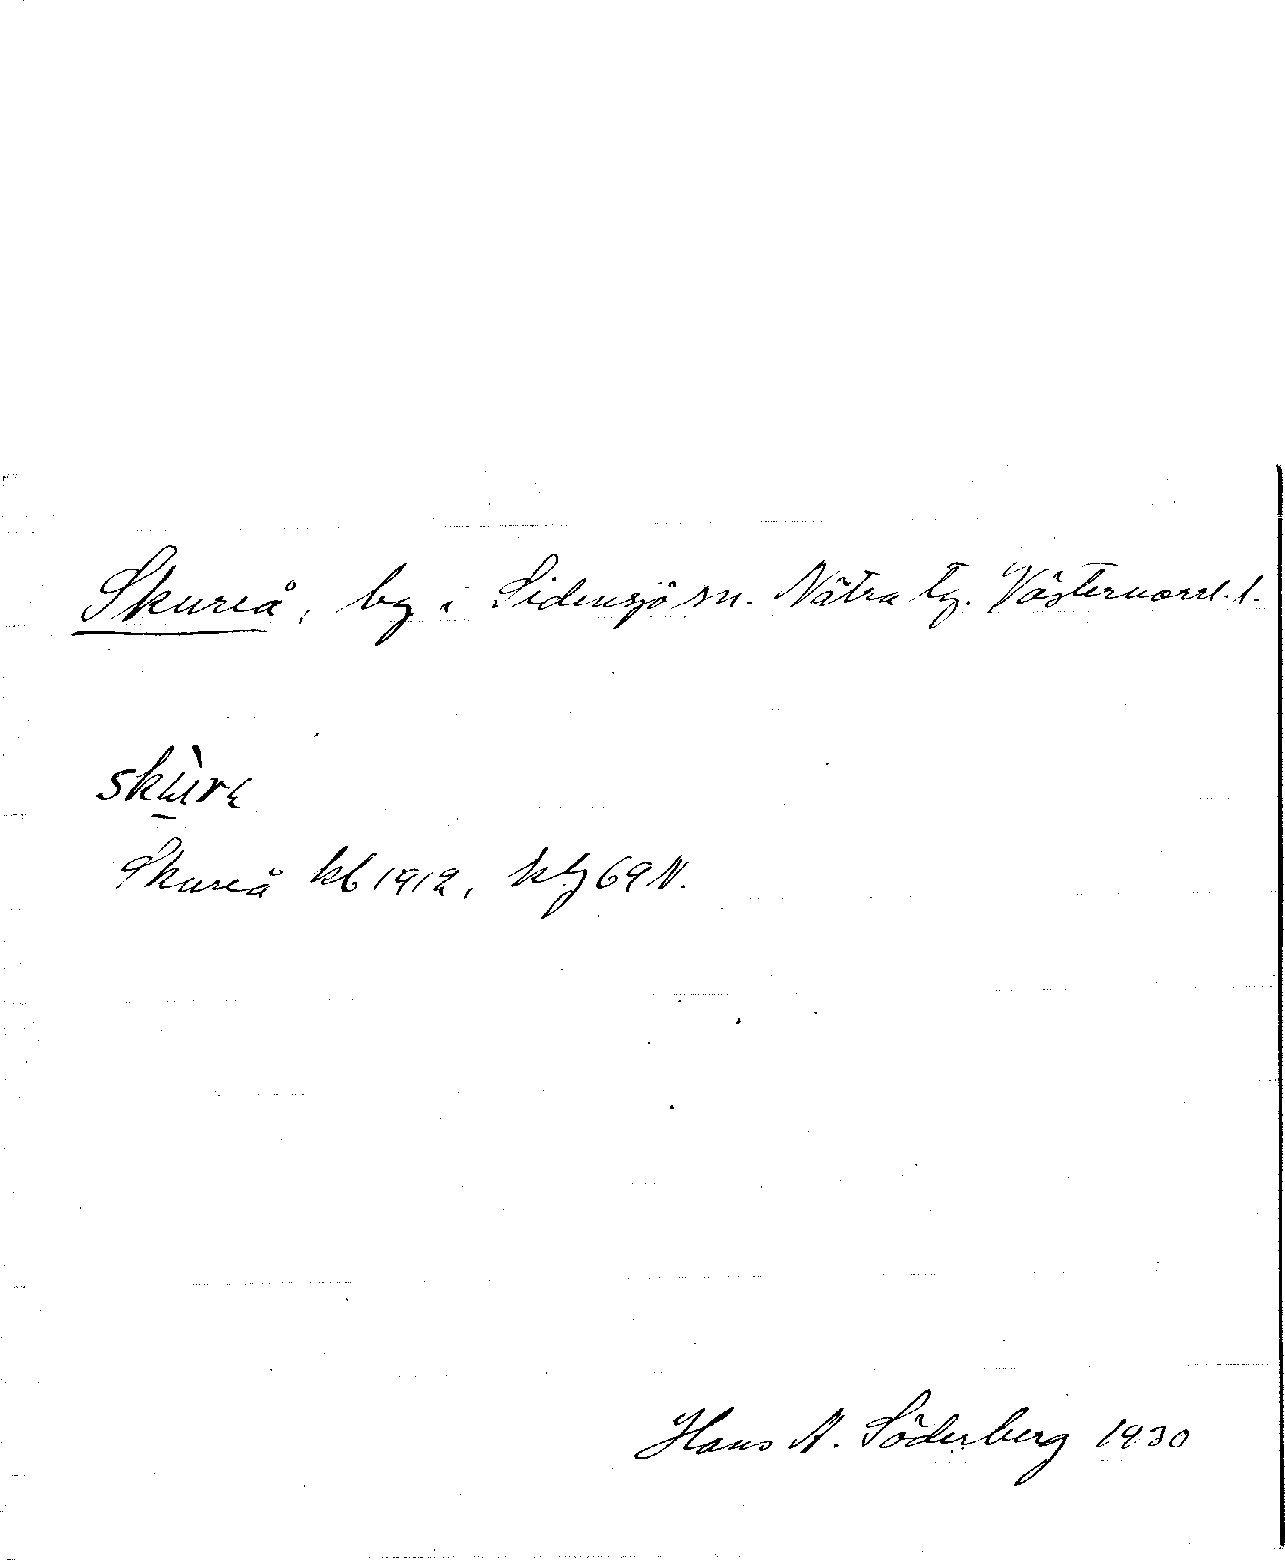 Skureå, by i Sidensjö sn. Nätra tg. Västernorrl. l.
skùrɐ
Skureå kb 1912, kbg 69 N.
Hans A. Söderberg 1930